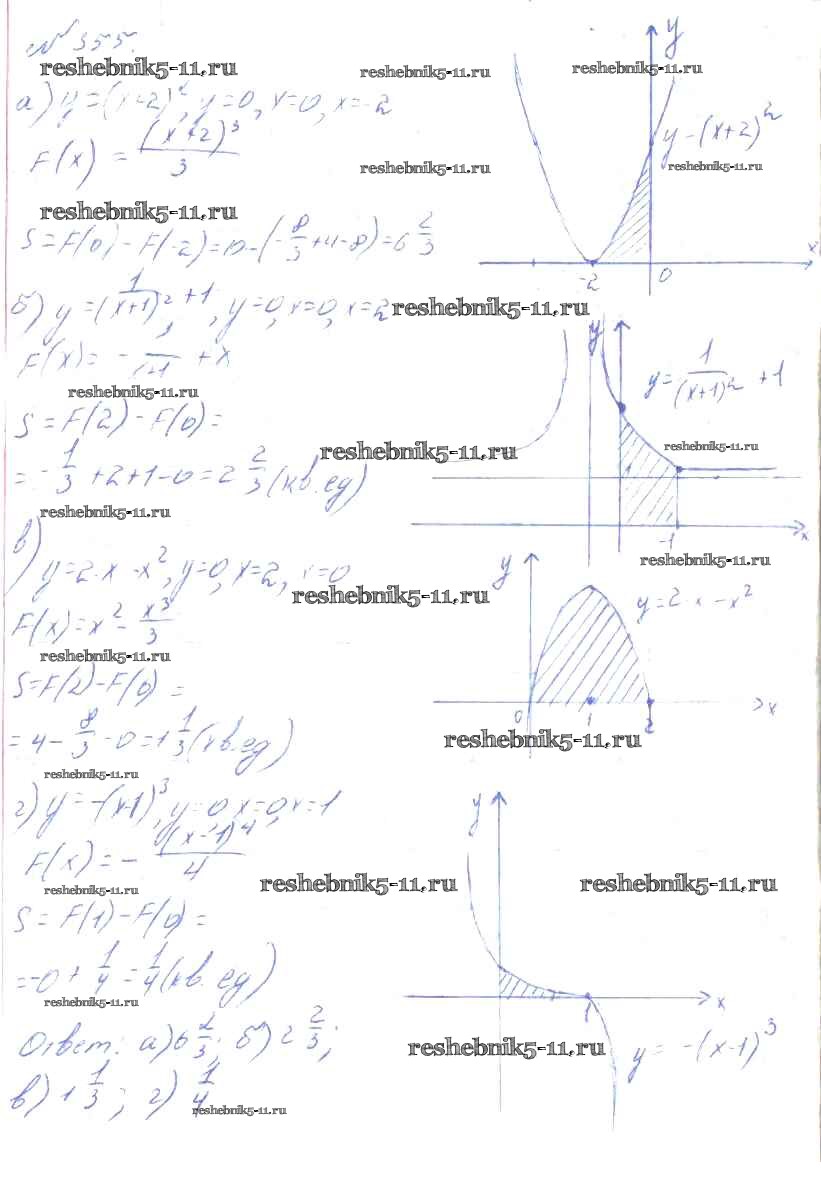 № 355.
reshebnik5-11.ru reshebnik5-11.ru reshebnik5-11.ru
а) y=(x+2)², y=0, x=0, x=-2
F(x) = (x+2)³/3
y=(x+2)²
reshebnik5-11.ru reshebnik5-11.ru
reshebnik5-11.ru
S=F(0)-F(-2)=0-(-8/3+4-8)=6 2/3
y
x
-2 0
б) y=1/(x+1)²+1, y=0, x=0, x=2
reshebnik5-11.ru
F(x)= - +x
reshebnik5-11.ru
y
y=1/(x+1)²+1
S=F(2)-F(0)=
reshebnik5-11.ru reshebnik5-11.ru
=-1/3+2+1-0=2 2/3(кв.ед)
reshebnik5-11.ru
-1 x
в)
reshebnik5-11.ru
y=2·x-x², y=0, x=2, x=0
reshebnik5-11.ru
y
y=2·x-x²
F(x)=x²-x³/3
reshebnik5-11.ru
S=F(2)-F(0)=
0 1 2 x
=4-8/3-0=1 1/3(кв.ед)
reshebnik5-11.ru
reshebnik5-11.ru
г) y=-(x-1)³, y=0, x=0, x=1
y
F(x)=-(x-1)⁴/4
reshebnik5-11.ru reshebnik5-11.ru reshebnik5-11.ru
S=F(1)-F(0)=
=-0+1/4=1/4(кв.ед)
reshebnik5-11.ru
1 x
Ответ: а)6 2/3; б)2 2/3;
reshebnik5-11.ru
y=-(x-1)³
в)1 1/3; г)1/4
reshebnik5-11.ru